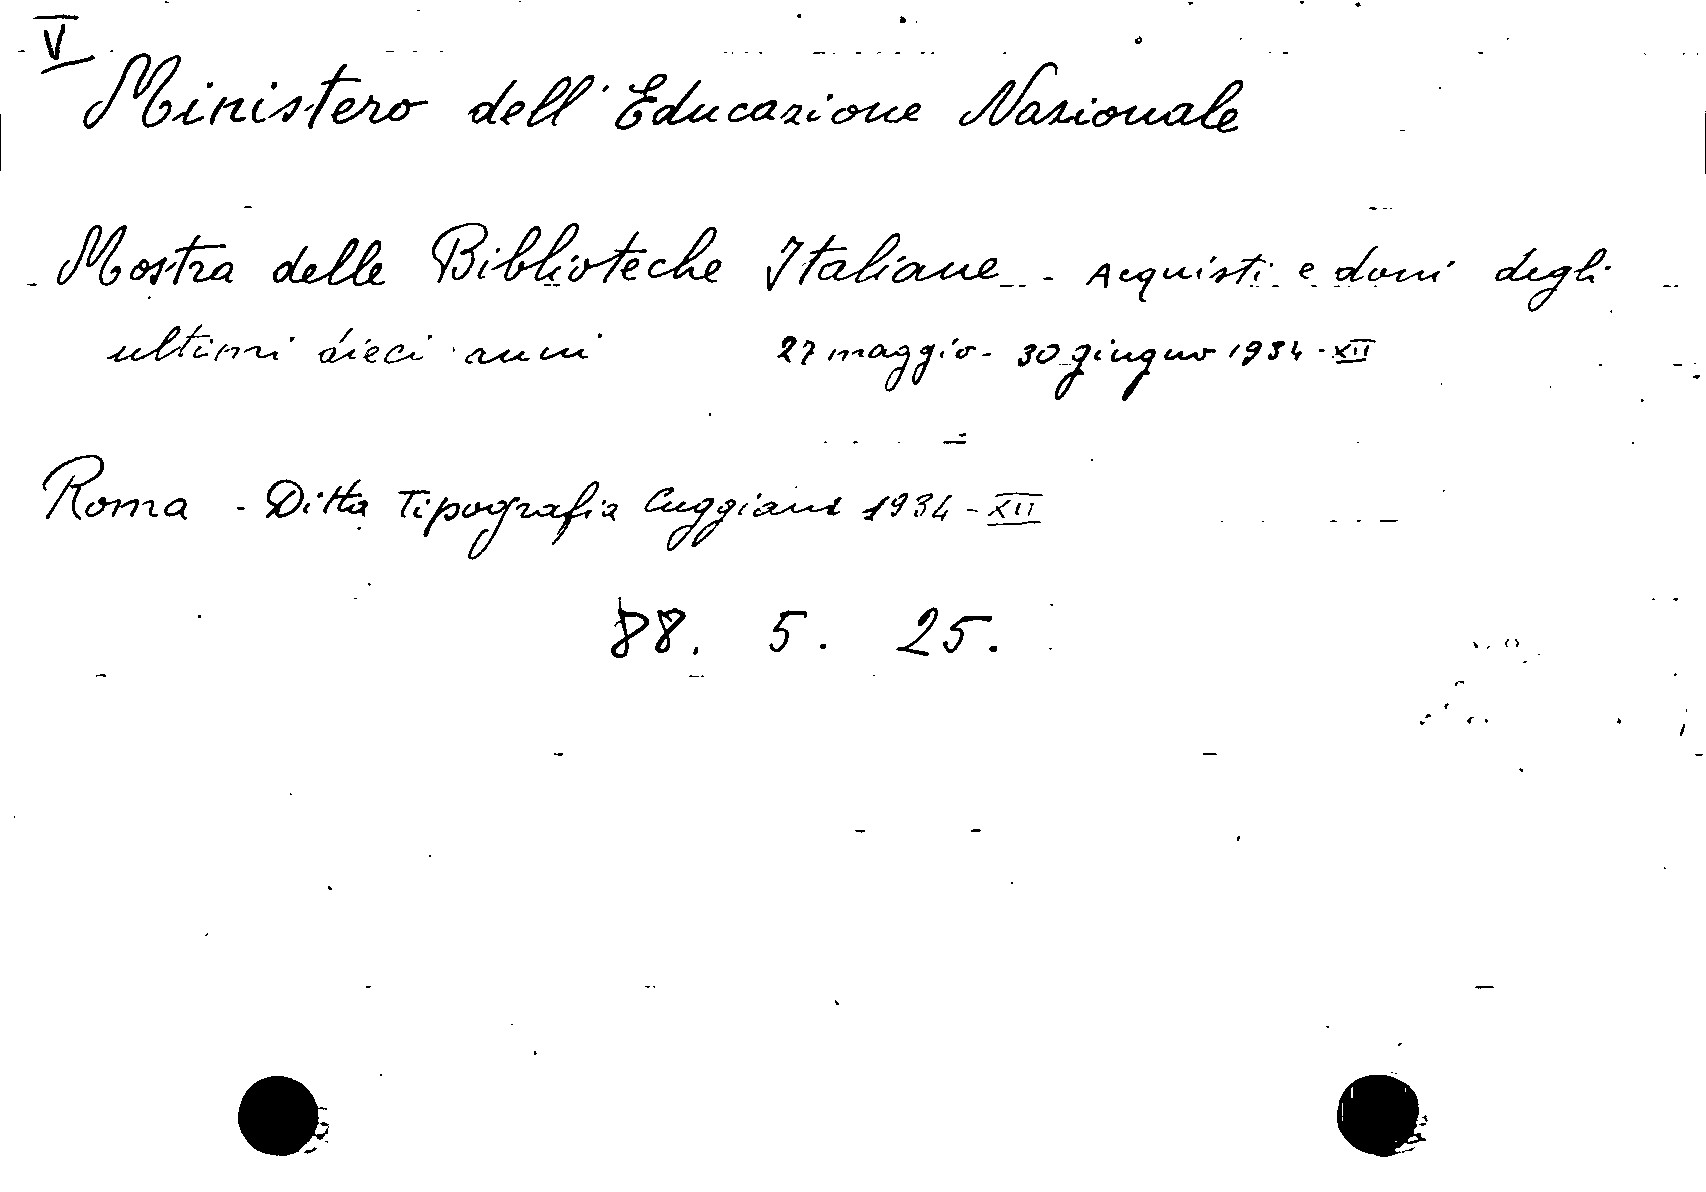 V
Ministero dell'Educazione Nazionale
Mostra delle Biblioteche Italiane - Acquisti e doni degli
ultimi dieci anni 27 maggio - 30 giugno 1934 - XII
Roma - Ditta Tipografia Cuggiani 1934 - XII
88. 5. 25.